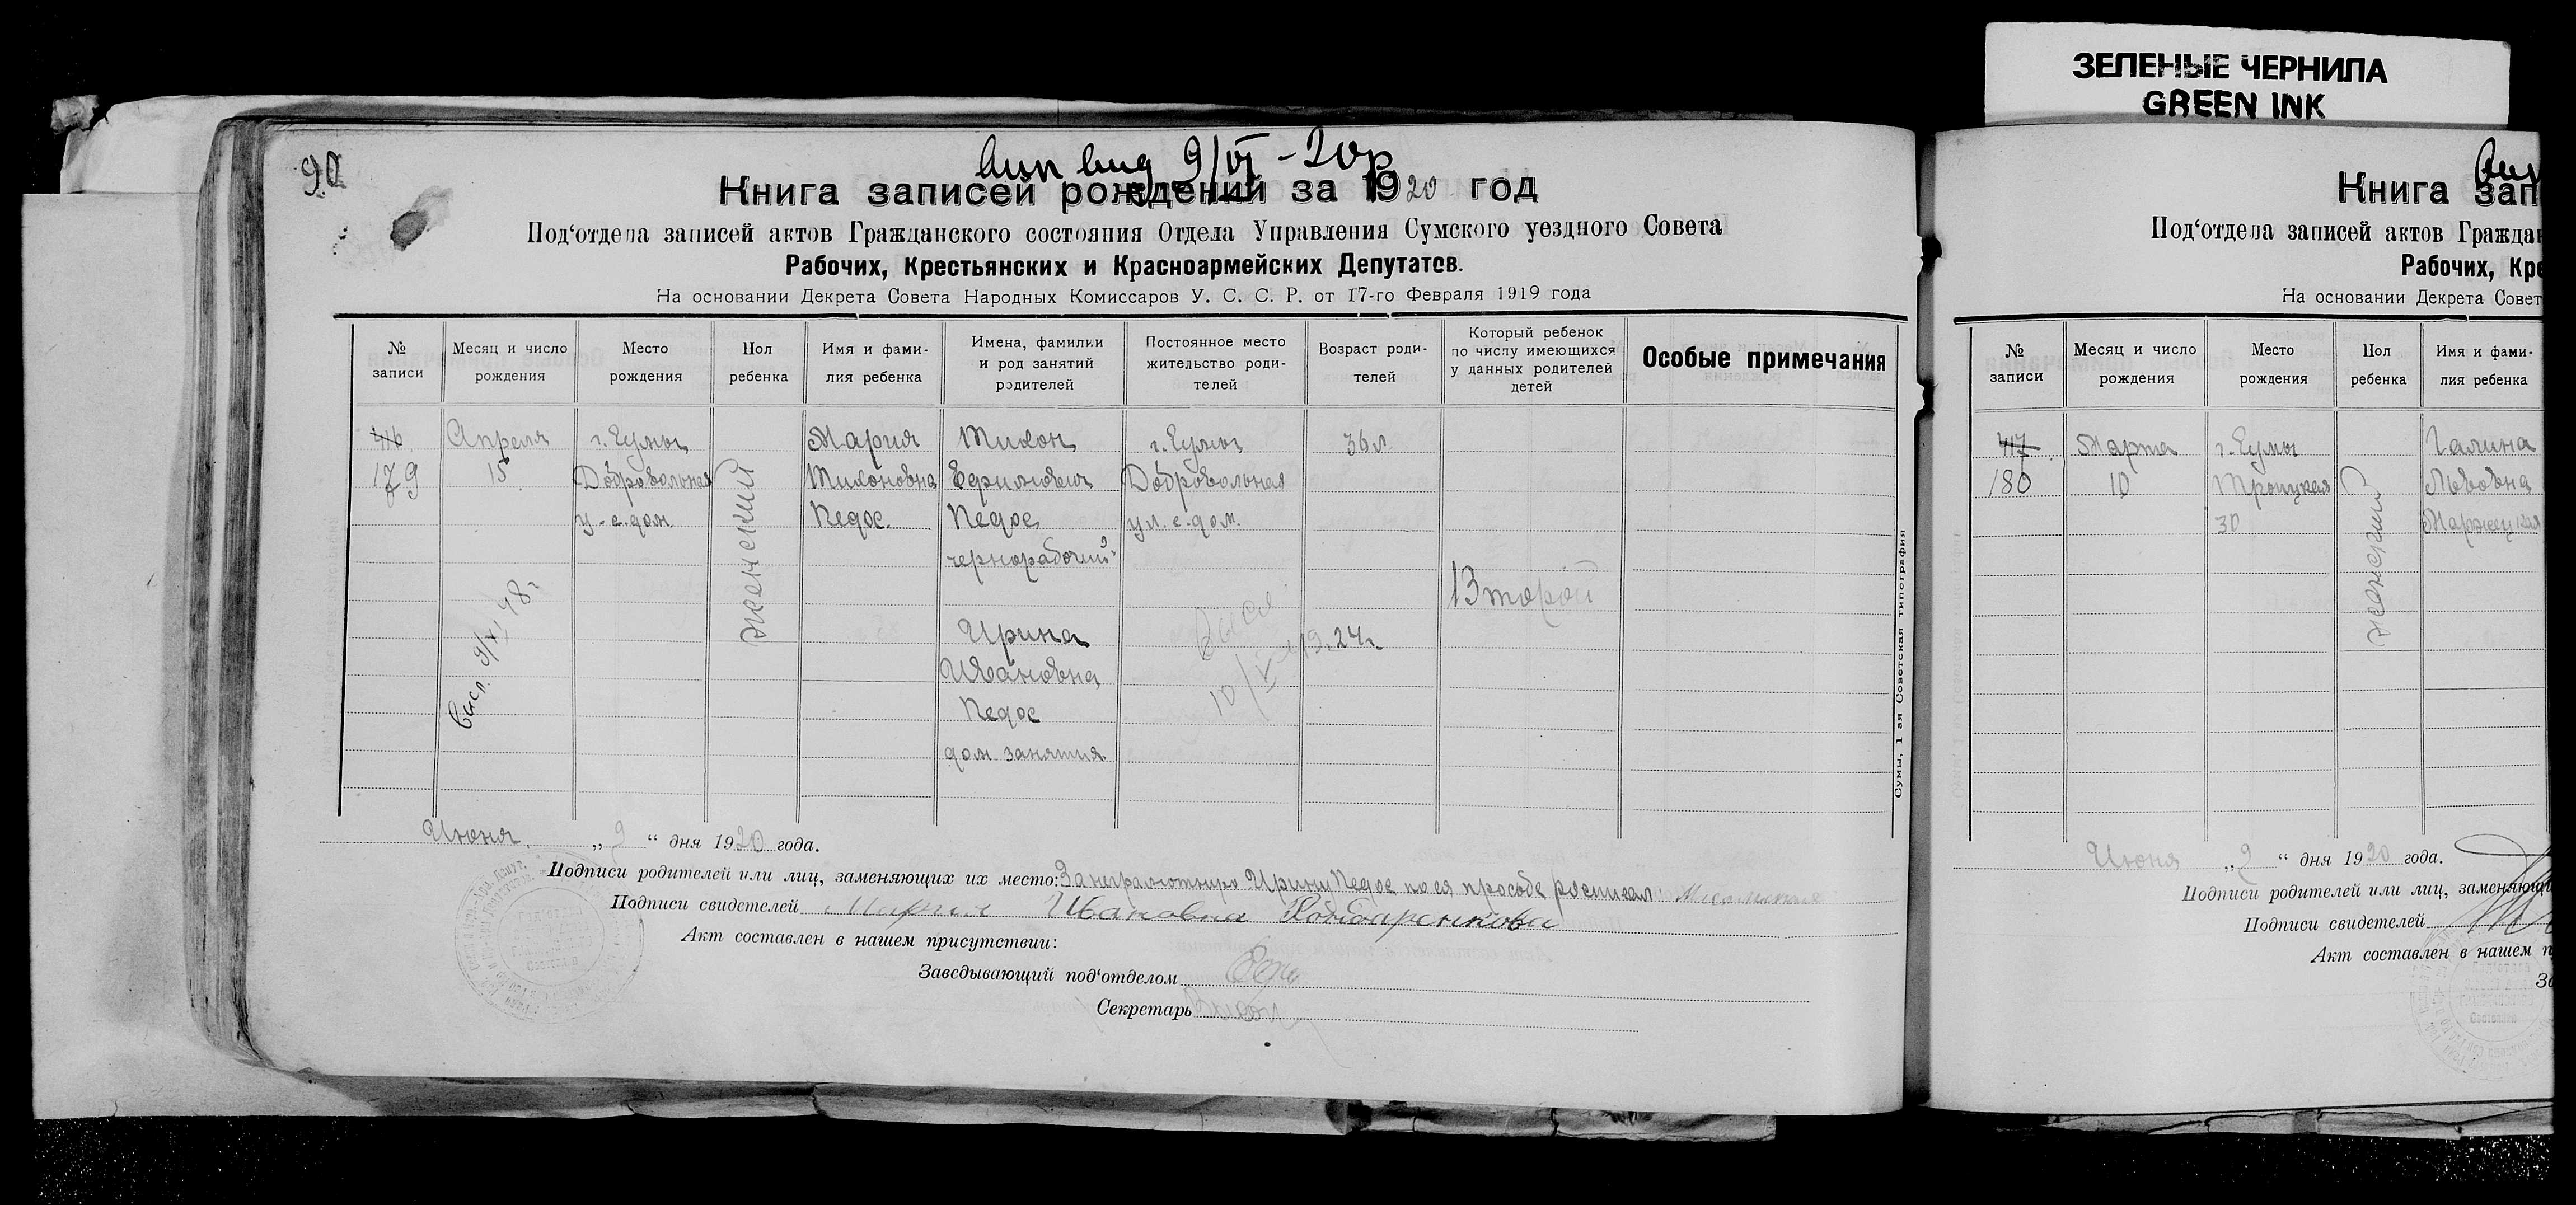 ЗЕЛЕНЫЕ ЧЕРНИЛА
GREEN INK
90
9/VI - 20г
Книга записей рождений за 1920 год
Под‘отдела записей актов Гражданского состояния Отдела Управления Сумского уездного Совета
Рабочих, Крестьянских и Красноармейских Депутатов.
На основании Декрета Совета Народных Комиссаров У. С. С. Р. от 17-го Февраля 1919 года
№ записи
Месяц и число рождения
Место рождения
Пол ребенка
Имя и фами-
лия ребенка
Имена, фамилии
и род занятий
родителей
Постоянное место
жительство роди-
телей
Возраст роди-
телей
Который ребенок
по числу имеющихся
у данных родителей
детей
Особые примечания
416
179
Апреля
15
г. Сумы
Добровольная
у. с. дом
женский
Мария
Тихоновна
Педос
Тихон
Ефимович
Педос
чернорабочий
Ирина
Ивановна
Педос
дом. занятия
г. Сумы
Добровольная
ул. с. дом.
36 л
24 г.
Второй
9/XI 48 г.
Июня „ 9 “ дня 1920 года.
Подписи родителей или лиц, заменяющих их место: За неграмотную Ирину Педос по ея прособе росписал
Подписи свидетелей Мария Ивановна
Акт составлен в нашем присутствии:
Заведывающий под‘отделом
Секретарь
Сумы, 1-ая Советская типография
Книга зап
Под‘отдела записей актов Граждан
Рабочих, Кре
На основании Декрета Совет
№ записи
Месяц и число рождения
Место рождения
Пол ребенка
Имя и фами-
лия ребенка
417
180
Марта
10
г. Сумы
Троицкая
30
женский
Галина
Львовна
Июня „ 9 “ дня 1920 года.
Подписи родителей или лиц, заменяющи
Подписи свидетелей
Акт составлен в нашем п
За